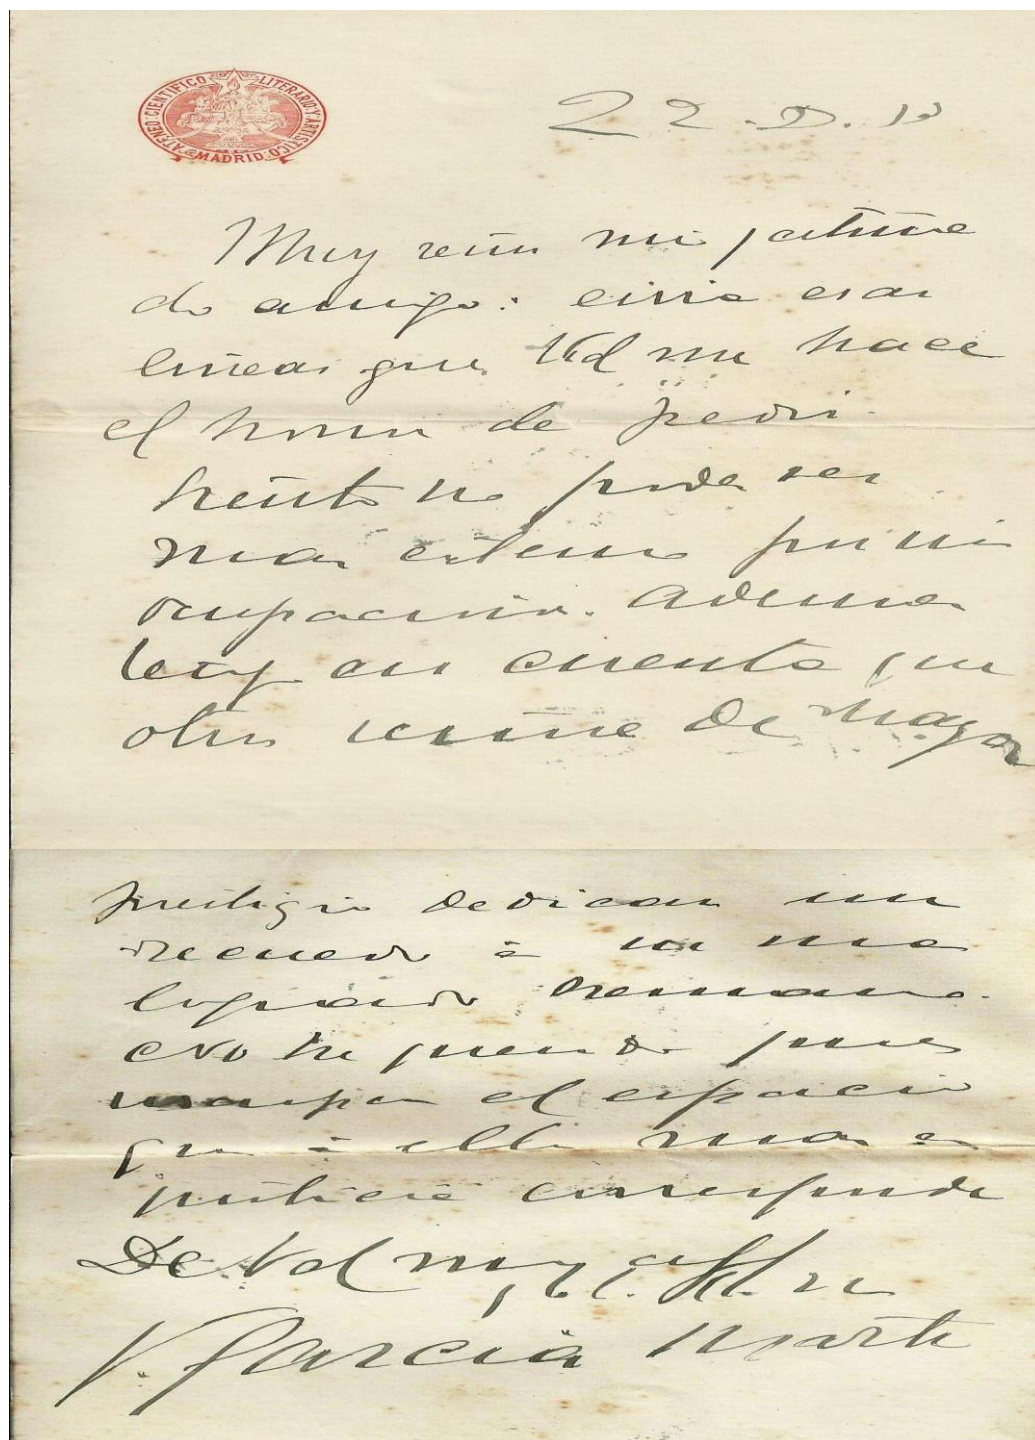 ATENEO CIENTIFICO LITERARIO Y ARTISTICO
MADRID
22.D.13
Muy señor mio y estima
do amigo: envio esas
lineas que Vd me hace
el honor de pedir.
Siento no poder ser
mas extenso por mi
ocupación. Ademas
tengo en cuenta que
otros de mayor
prestigio dedican un
recuerdo á su ma
logrado hermano.
No he querido pues
usurpar el espacio
que á ellos mas en
justicia corresponde
De Vd muy af
V. Garcia Marti